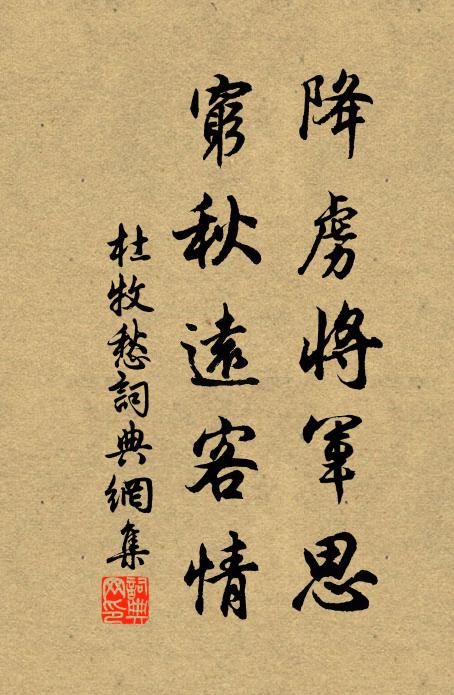 降虜將軍思
窮秋遠客情
杜牧愁詞典網集
詞典网印